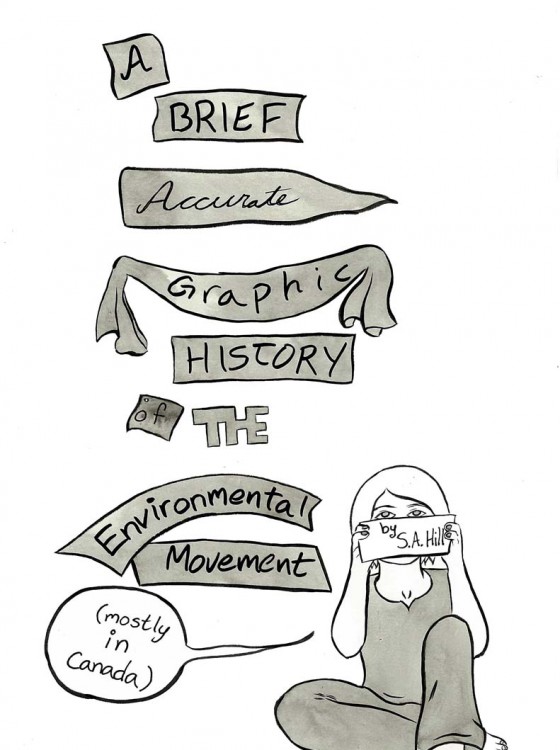 A
BRIEF
Accurate
Graphic
HISTORY
of THE
Environmental
Movement
by
S.A. Hill
(mostly
in
Canada)